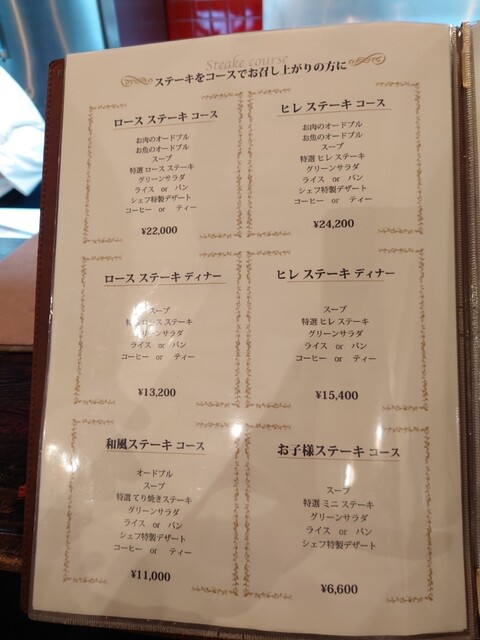 Steake course
ステーキをコースでお召し上がりの方に
ロース ステーキ コース
お肉のオードブル
お魚のオードブル
スープ
特選 ロース ステーキ
グリーンサラダ
ライス or パン
シェフ特製デザート
コーヒー or ティー
¥22,000
ヒレ ステーキ コース
お肉のオードブル
お魚のオードブル
スープ
特選 ヒレ ステーキ
グリーンサラダ
ライス or パン
シェフ特製デザート
コーヒー or ティー
¥24,200
ロース ステーキ ディナー
スープ
特選 ロース ステーキ
グリーンサラダ
ライス or パン
コーヒー or ティー
¥13,200
ヒレ ステーキ ディナー
スープ
特選 ヒレ ステーキ
グリーンサラダ
ライス or パン
コーヒー or ティー
¥15,400
和風ステーキ コース
オードブル
スープ
特選 てり焼きステーキ
グリーンサラダ
ライス or パン
シェフ特製デザート
コーヒー or ティー
¥11,000
お子様ステーキ コース
スープ
特選 ミニ ステーキ
グリーンサラダ
ライス or パン
シェフ特製デザート
¥6,600